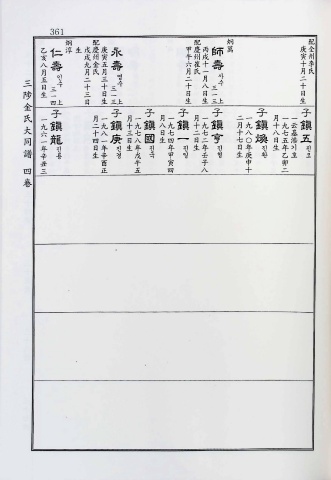 361
配全州李氏
庚寅十月二十日生
炳萬
師壽 사수 三一三上
丙戌十一月八日生
配慶州崔氏
甲午六月二十日生
永壽 영수 三一三上
庚寅五月三十日生
配慶州金氏
戊戌九月二十三日生
炳淳
仁壽 인수 三一四上
乙亥八月五日生
子鎭五 진오
一九七五年乙卯二月十八日生
子鎭煥 진환
一九八〇年庚申十二月十七日生
子鎭亨 진형
一九七二年壬子八月十二日生
子鎭一 진일
一九七四年甲寅四月八日生
子鎭國 진국
一九七八年戊午五月十三日生
子鎭庚 진경
一九八一年辛酉正月二十四日生
子鎭龍 진용
一九六一年辛丑三
三陟金氏大同譜 四卷